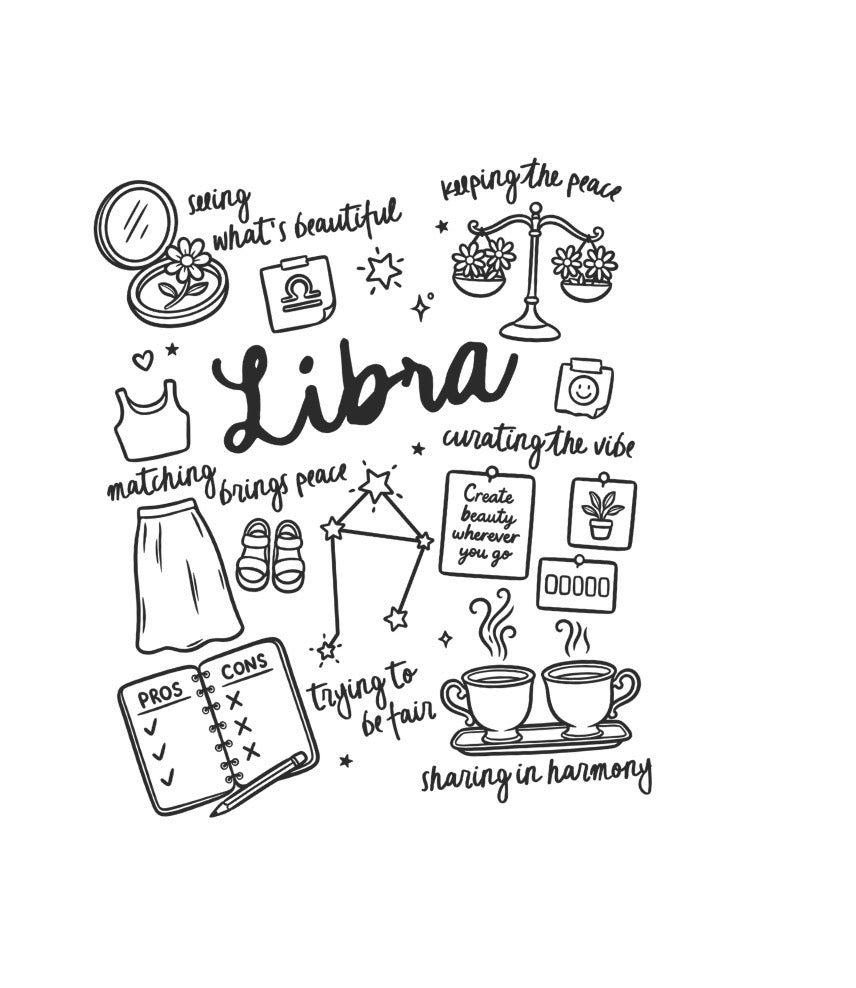 seeing
what's beautiful
keeping the peace
Libra
curating the vibe
matching brings peace
Create
beauty
wherever
you go
00000
PROS
CONS
trying to
be fair
sharing in harmony